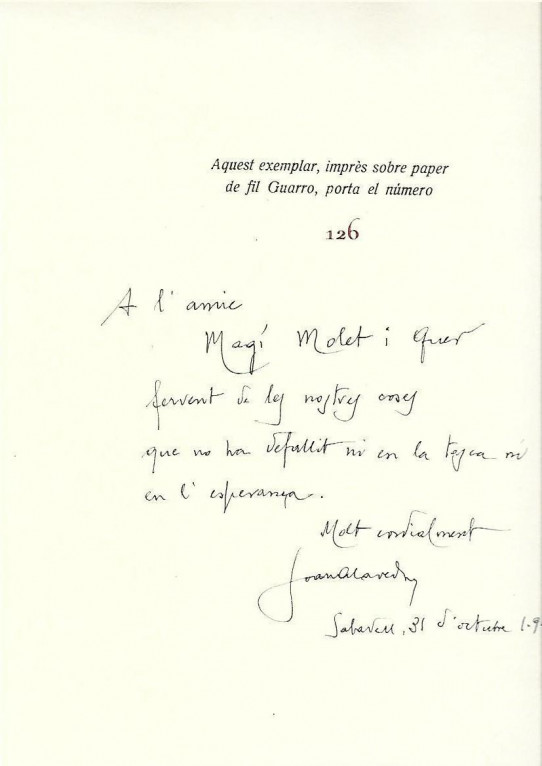 Aquest exemplar, imprès sobre paper
de fil Guarro, porta el número
126
A l'amic
Magí Molet i Quer
fervent de les nostres coses
que no ha defallit ni en la tasca ni
en l'esperança.
Molt cordialment
Joan Alavedra
Sabadell, 31 d'octubre 1.9